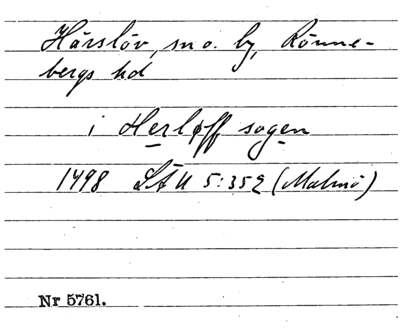 Härslöv, sn o. by, Rönne-
bergs hd
i Herløff sogen
1498 LÄU 5:352 (Malmö)
Nr 5761.